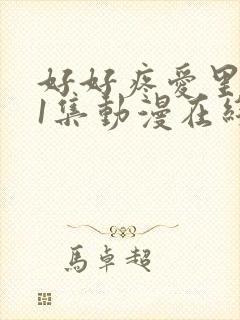 好好疼愛里
1集動漫在
馬卓超